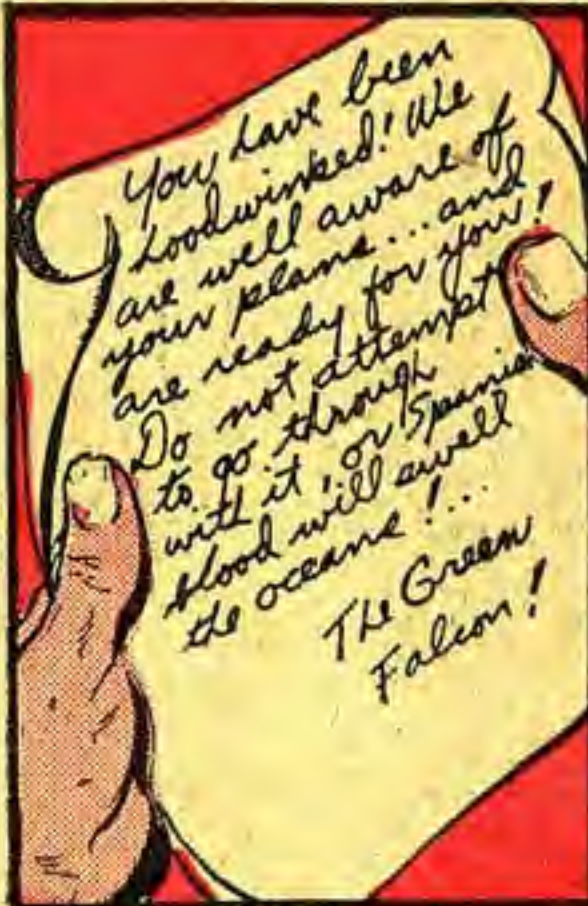 You have been
hoodwinked! We
are well aware of
your plans...and
are ready for you!
Do not attempt
to go through
with it, or Spanish
blood will swell
the oceans!...
The Green
Falcon!